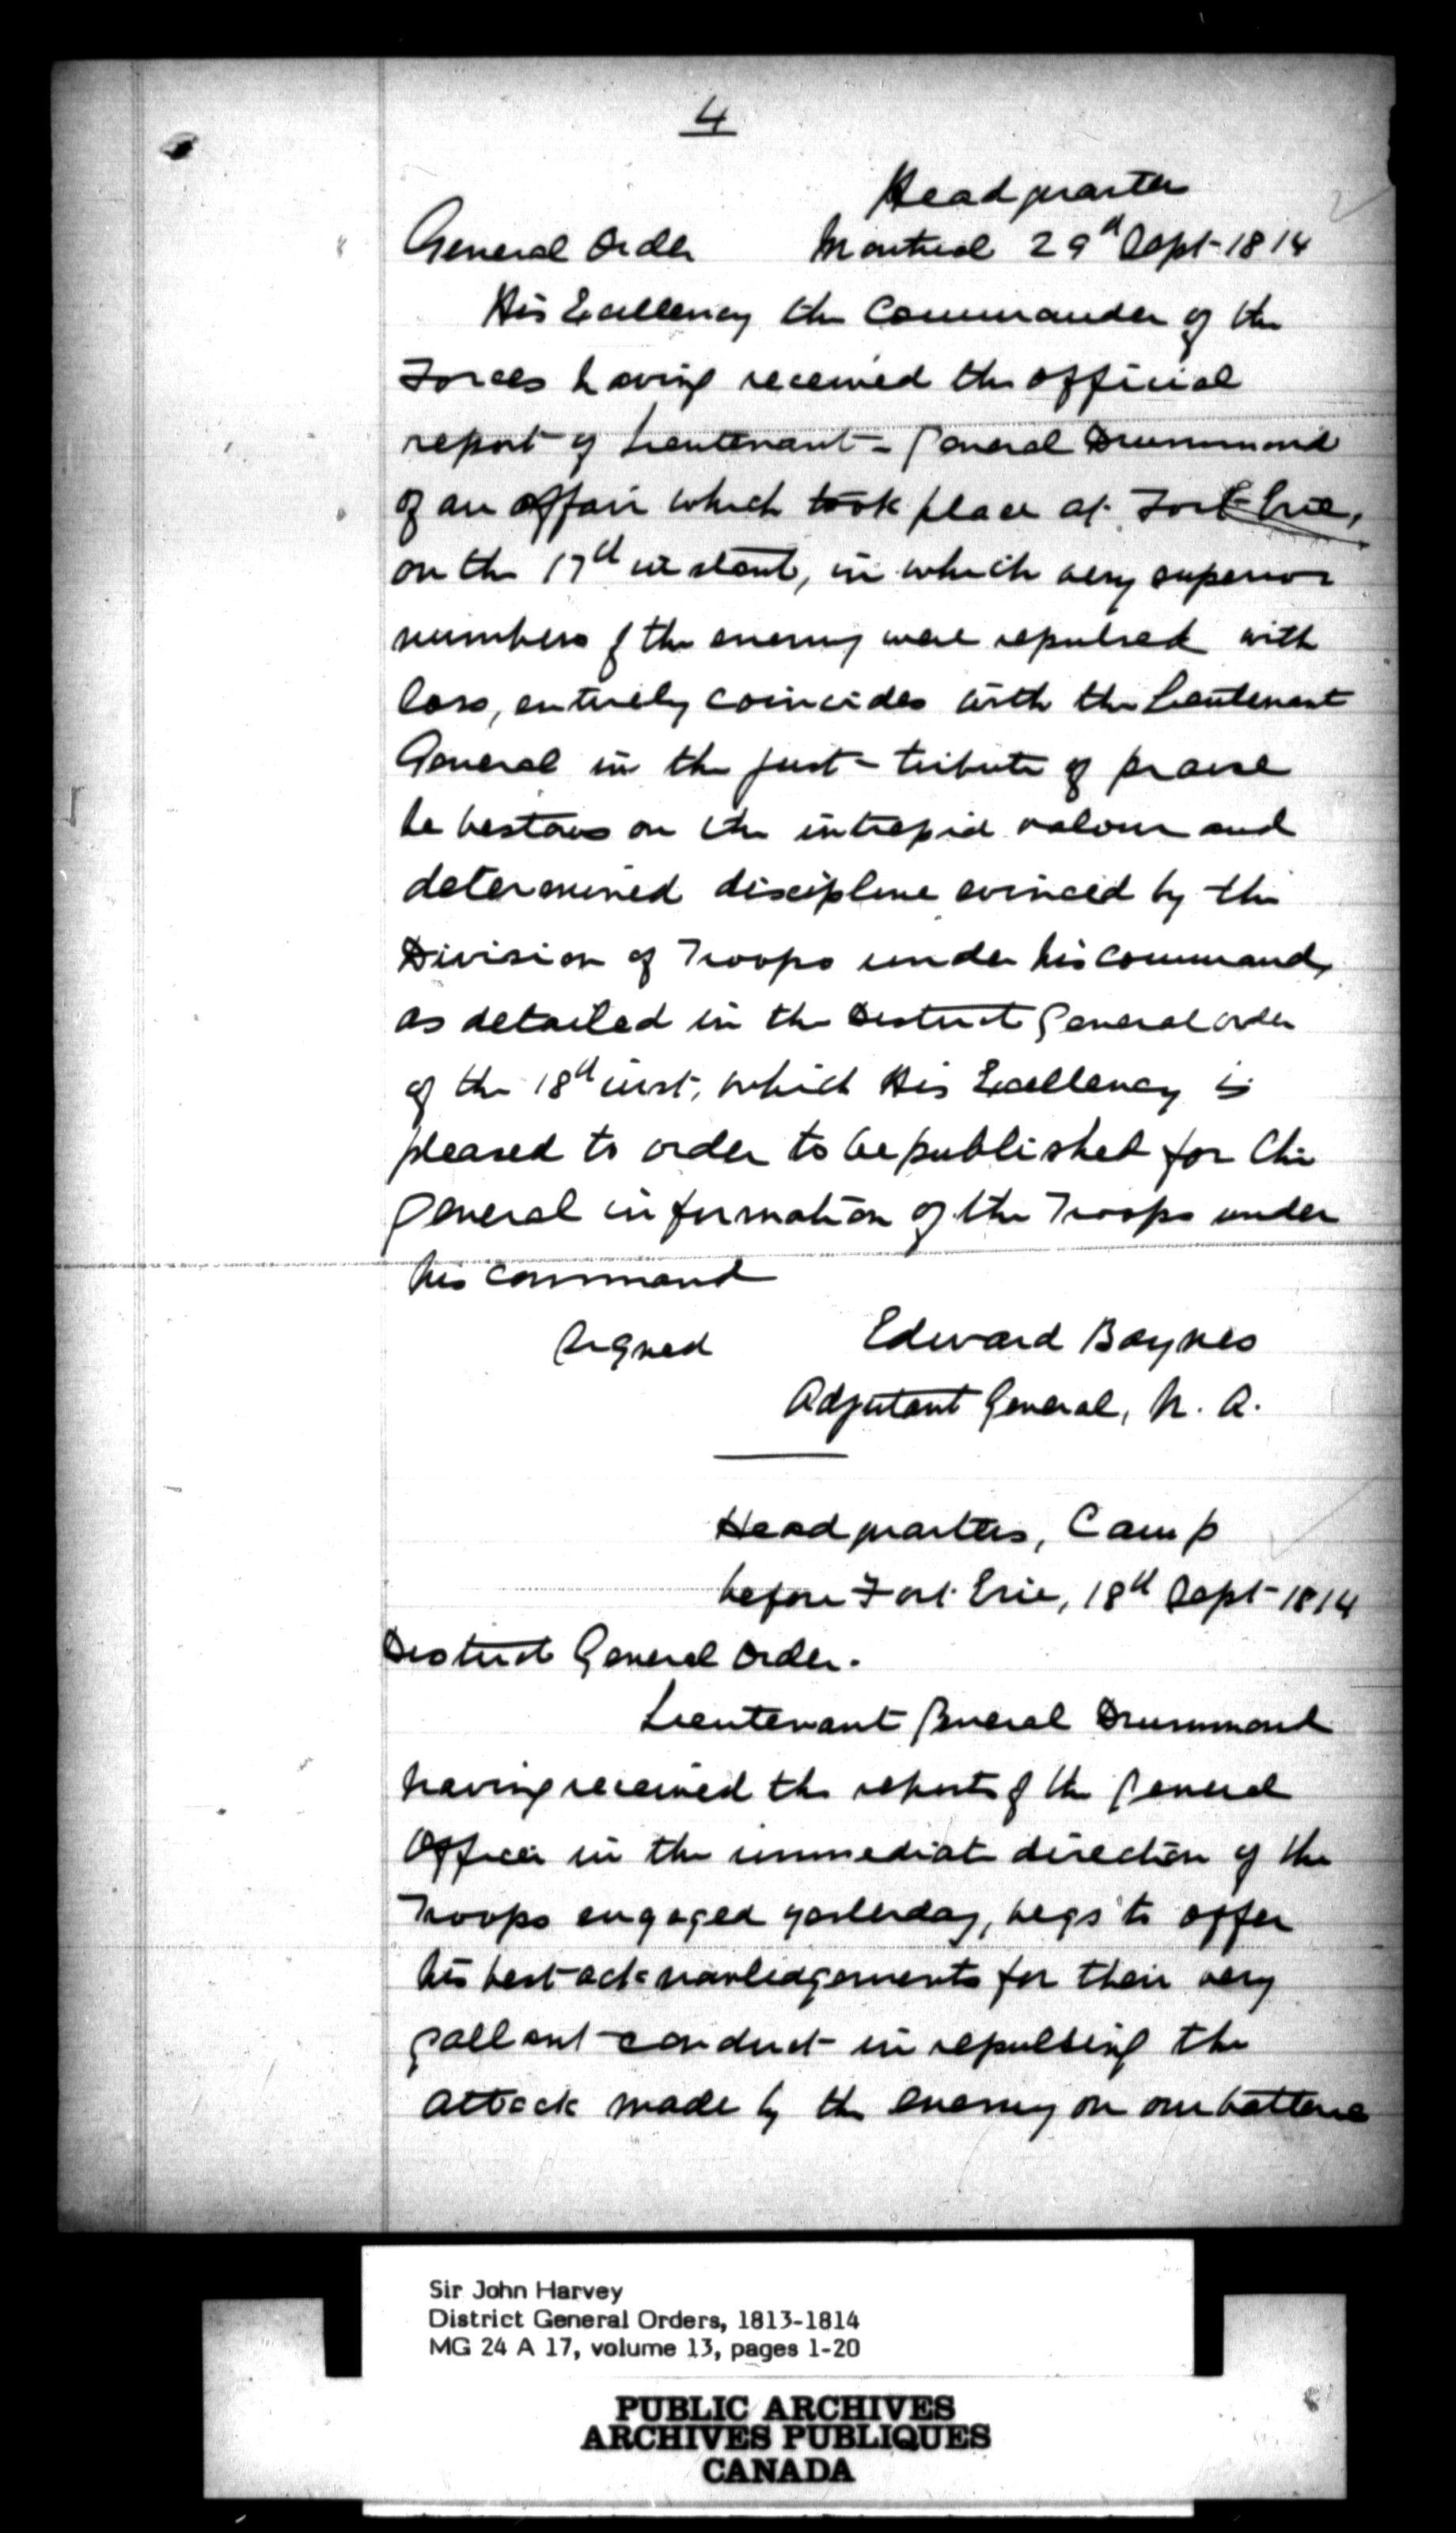 4
Headquarters
General Order Montreal 29th Sept 1814
His Excellency the Commander of the
Forces having received the official
report of Lieutenant-General Drummond
of an affair which took place at Fort Erie,
on the 17th instant, in which very superior
numbers of the enemy were repulsed with
loss, entirely coincides with the Lieutenant
General in the just tribute of praise
he bestows on the intrepid valour and
determined discipline evinced by the
Division of Troops under his command,
as detailed in the District General order
of the 18th inst, which His Excellency is
pleased to order to be published for the
General information of the Troops under
his command
Signed Edward Baynes
Adjutant General, N. A.
Headquarters, Camp
before Fort Erie, 18th Sept 1814
District General Order.
Lieutenant General Drummond
having received the reports of the General
Officer in the immediate direction of the
Troops engaged yesterday, begs to offer
his best acknowledgements for their very
gallant conduct in repulsing the
attack made by the enemy on our batterie
Sir John Harvey
District General Orders, 1813-1814
MG 24 A 17, volume 13, pages 1-20
PUBLIC ARCHIVES
ARCHIVES PUBLIQUES
CANADA